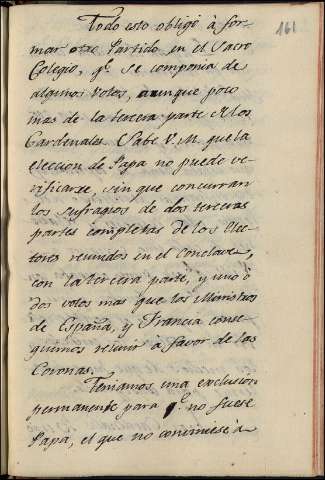 161
Todo esto obligò à for-
mar otro Partido en el Sacro
Colegio, qe. se componia de
algunos votos, aunque poco
mas de la tercera parte de los
Cardenales. Sabe V. M. que la
eleccion de Papa no puede ve-
rificarse, sin que concurran
los sufragios de dos terceras
partes completas de los Elec-
tores reunidos en el Conclave,
con la tercera parte, y uno ó
dos votos mas que los Ministros
de España, y Francia conse-
guimos reunir à favor de las
Coronas.
Teniamos una exclusion
permanente para qe. no fuese
Papa, el que no conviniese à